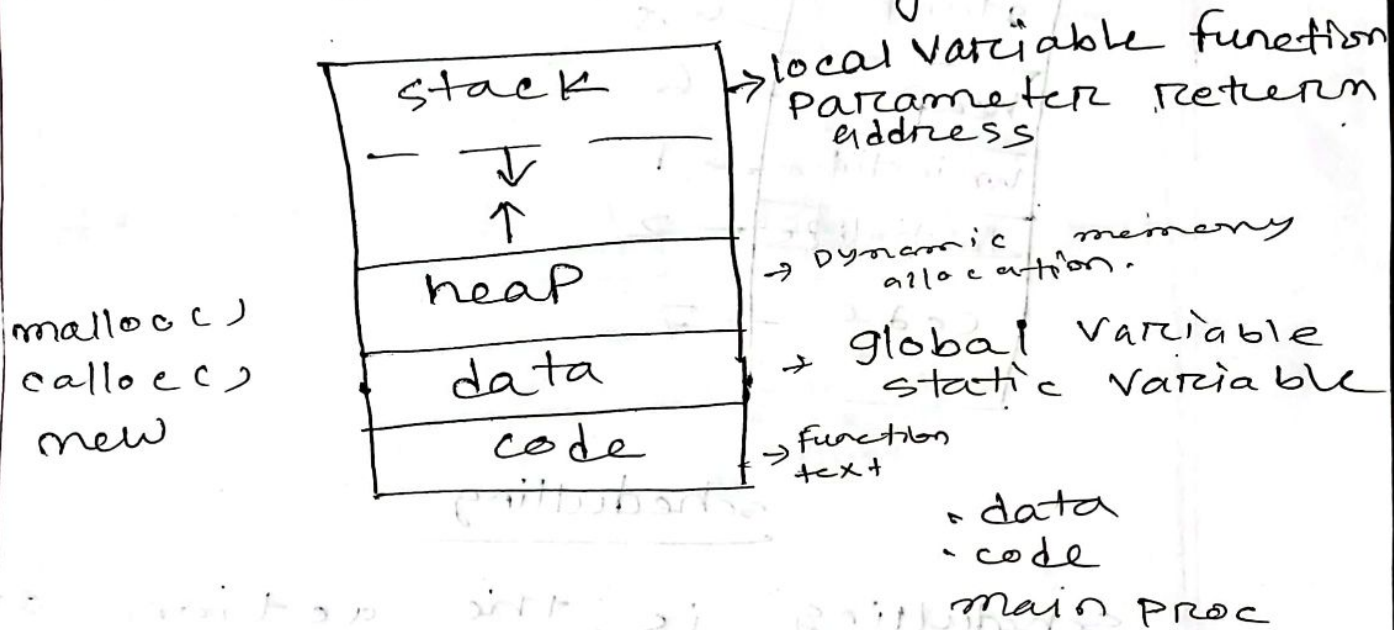 stack
→ local variable function
parameter return
address
↓
↑
heap
→ Dynamic memory
allocation.
malloc()
calloc()
new
data
→ global variable
static variable
code
→ function
text
. data
. code
main proc